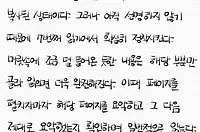 복사된 상태이다. 그러나 아직 선명하지 않기
때문에 7번째 읽기에서 확실히 정착시킨다.
머릿속에 조금 덜 들어온 듯한 내용은 해당 부분만
골라 읽으면 더욱 완전해진다. 이때 페이지를
펼치자마자 해당 페이지를 요약하고 그 다음
제대로 요약했는지 확인하며 일반적으로 읽는다.